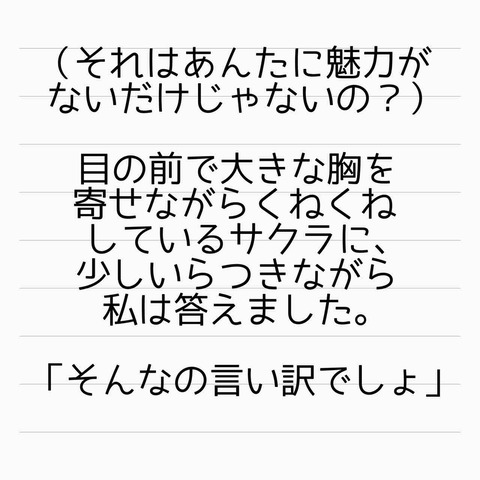 （それはあんたに魅力が
ないだけじゃないの？）
目の前で大きな胸を
寄せながらくねくね
しているサクラに、
少しいらつきながら
私は答えました。
「そんなの言い訳でしょ」